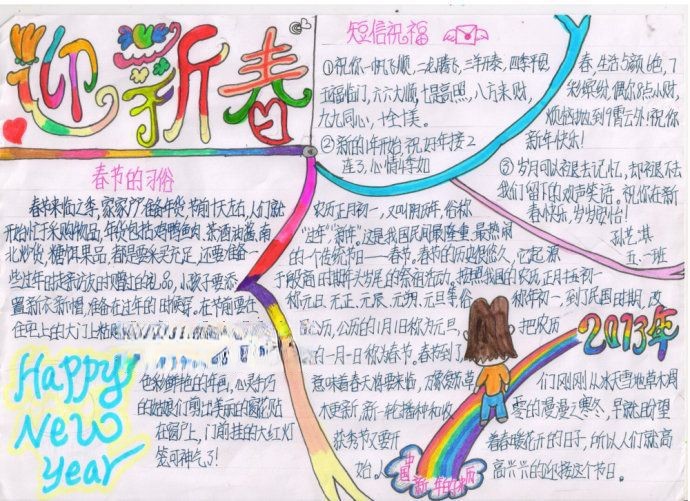 迎新春
短信祝福
①祝你一帆飞顺,二龙腾飞,三羊开泰,四季平安
五福临门,六六大顺,七星高照,八方来财,
九九同心,十全十美。
②新的1年开始,祝好年接2
连3,心情4季如
春,生活5颜6色,7
彩缤纷,偶尔8点小财,
烦恼抛到9霄云外!祝你
新年快乐!
③岁月可以褪去记忆,却褪不去
我们留下的欢声笑语。祝你在新
春快乐,岁岁安怡!
五、一班
春节的习俗
春节来临之季,家家户户准备年货,节前十天左右,人们就
开始忙于采购物品,年货包括鸡鸭鱼肉、茶酒油酱、南
北炒货、糖饵果品,都是要采买充足,还要准备一
些过年时走亲访友时赠送的礼品,小孩子要添
置新衣新帽,准备在过年的时候穿。在节前要在
住宅上的大门上粘贴
色彩鲜艳的年画,心灵手巧
的姑娘们剪出美丽的窗花贴
在窗户上,门前挂的大红灯
笼可神气了!
农历正月初一,又叫阴历年,俗称
“过年”“新年”。这是我国民间最隆重、最热闹
的一个传统节日——春节。春节的历史很悠久,它起源
于殷商时期年头岁尾的祭祖活动。按照我国的农历正月初一
称元日、元正、元辰、元朔、元旦等俗称年初一,到了民国时期,改
公历,公历的1月1日称为元旦,把农历
的一月一日称为春节。春节到了
意味着春天将要来临,万象复苏草
木更新,新一轮播种和收
获季节又要开
始。人
们刚刚从冰天雪地草木凋
零的漫漫寒冬,早就盼望
着春暖花开的日子,所以人们就高
高兴兴的迎接这个节日。
2013年
Happy
New
year